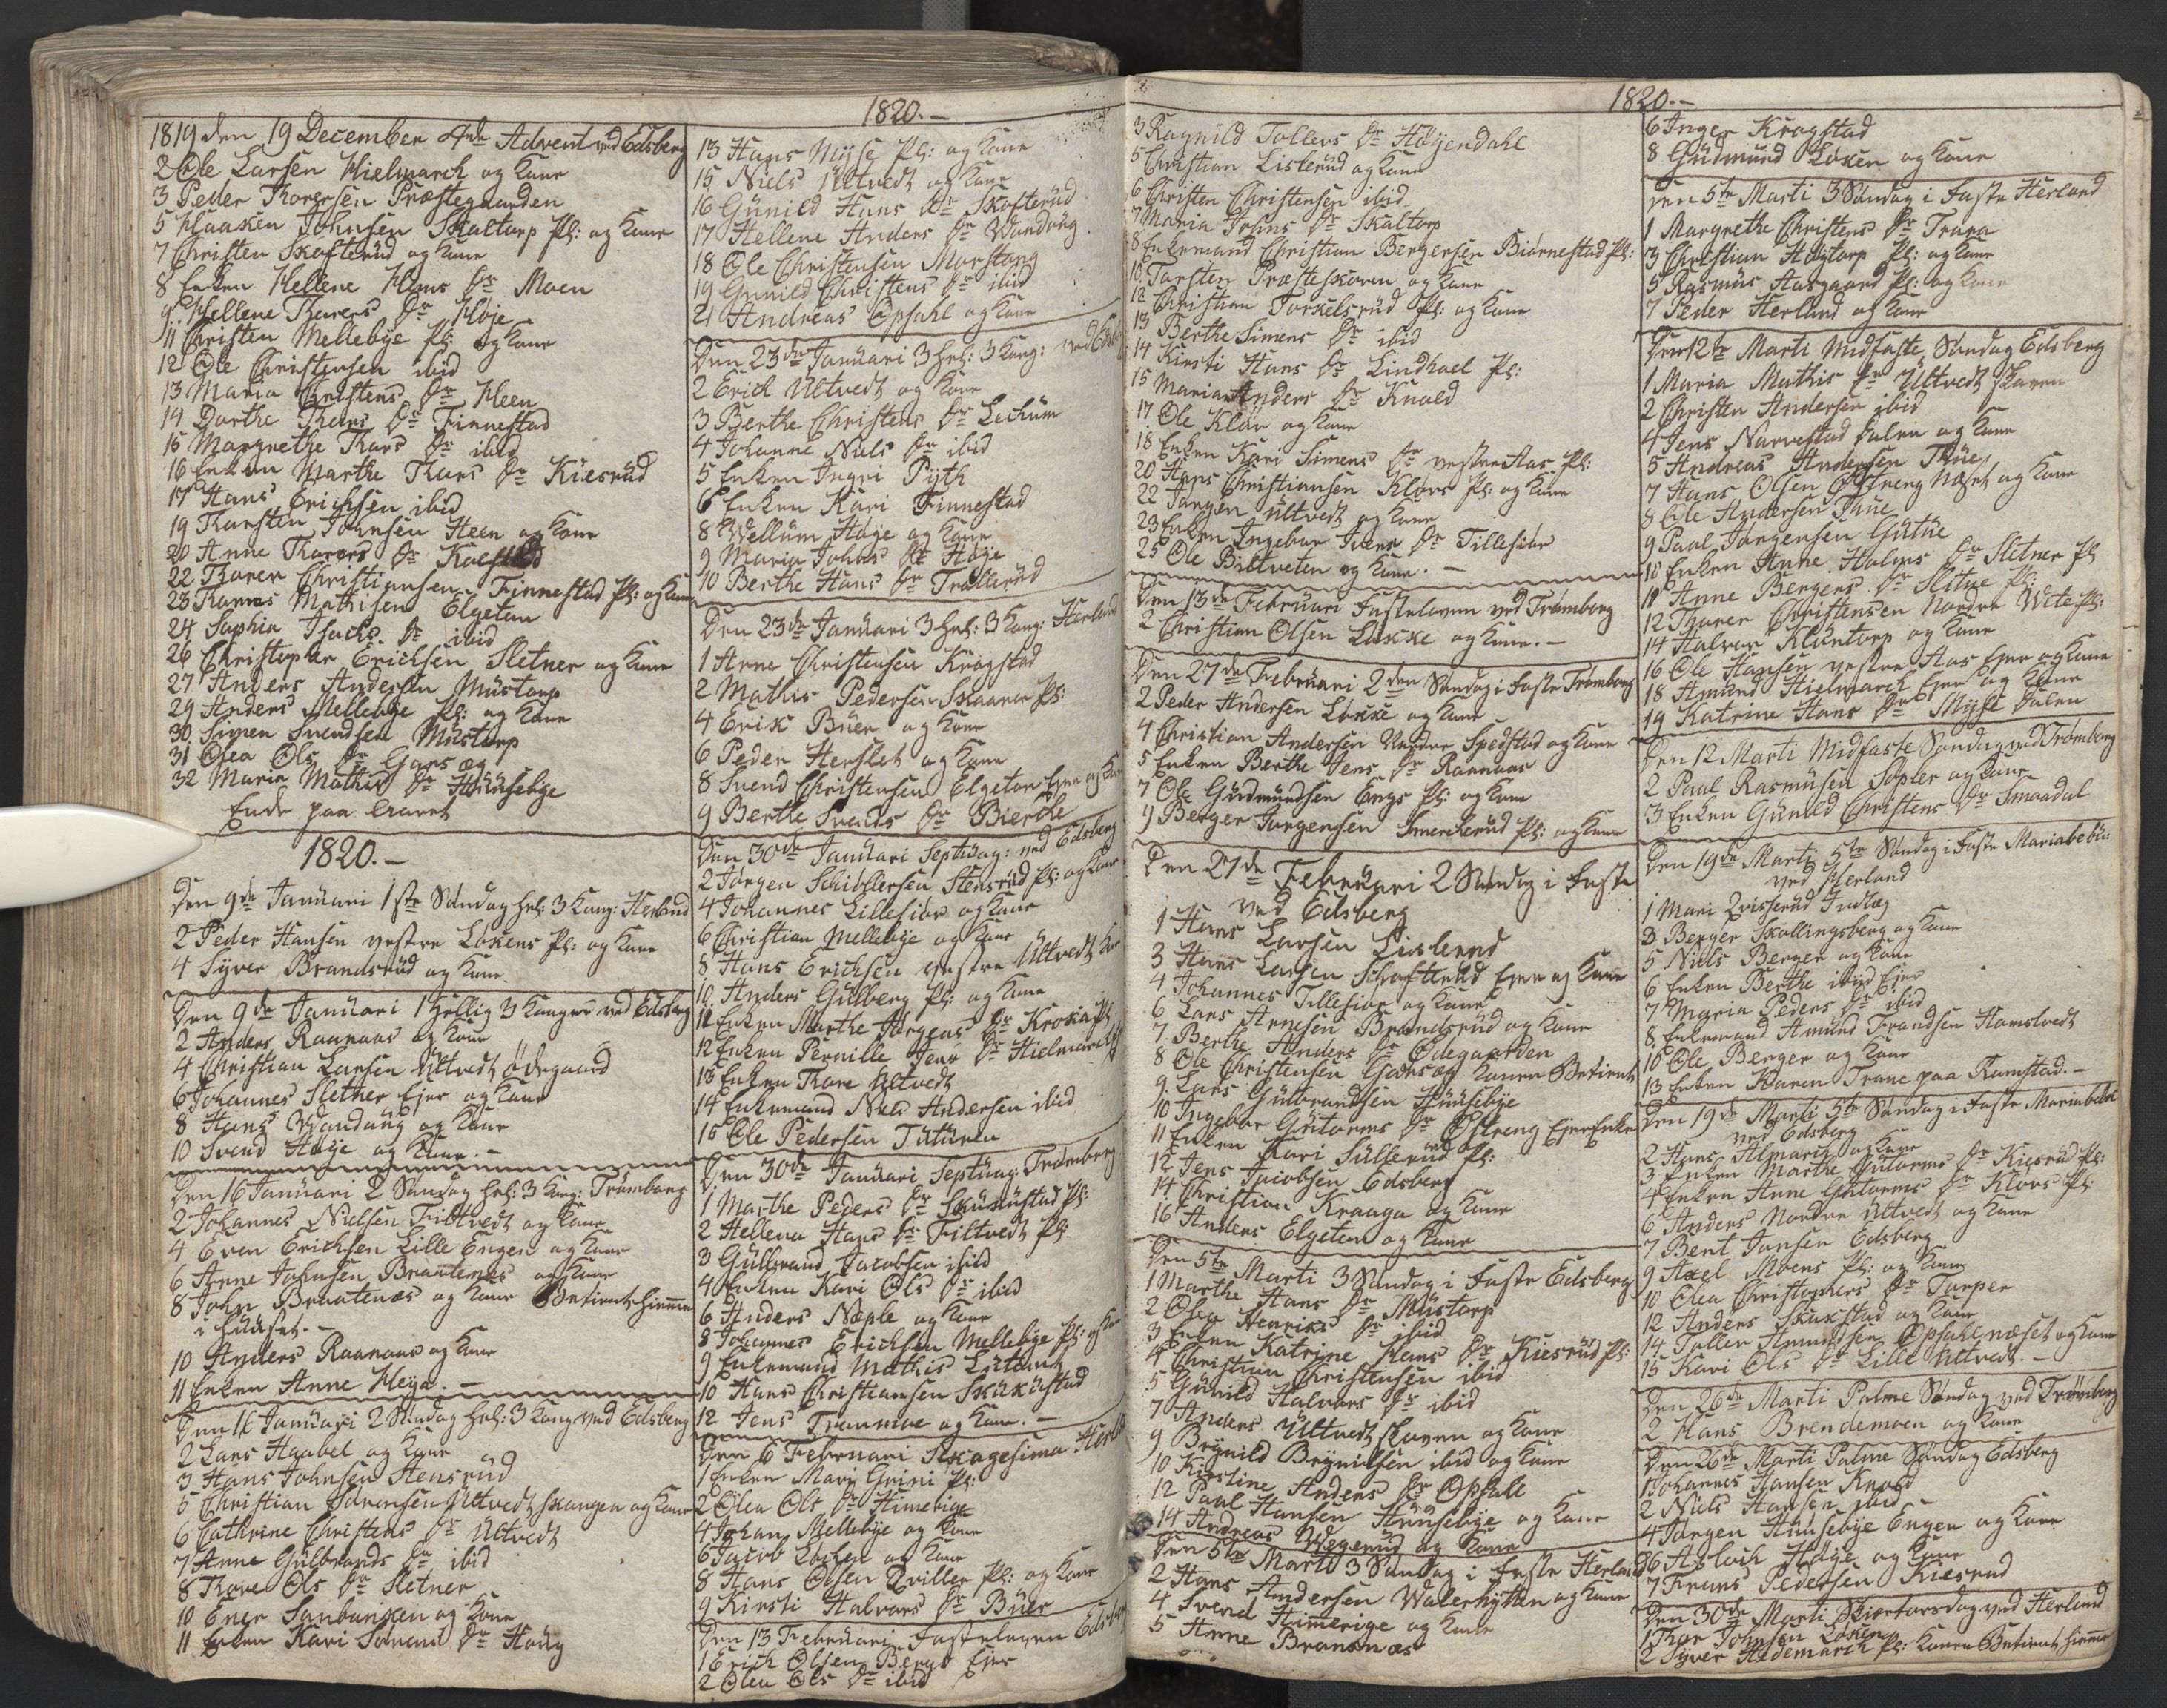 1820.-
1819 den 19 December 4de Advent ved Edsberg
2 Ole Larsen Hielmarck og Kone
3 Peder Thorersen Præstegaarden
5 Haaken Johnsen Skaltorp Pl: og Kone
7 Christen Skofterud og Kone
8 Enken Hellene Hans Dr Moen
9 Hellene Thorers Dr Høje
11 Christen Mellebÿe Pl: og Kone
12 Ole Christensen ibid
13 Maria Christens Dr Heen
14 Dorthe Thors Dr Finnestad
15 Margrethe Thors Dr ibid
16 Enken Marthe Thors Dr Kiesrud
17 Hans Erichsen ibid
19 Thorsten Johnsen Heen og Kone
20 Anne Thorers Dr
22 Thorer Christiansen Finnestad Pl: og Kone
23 Mathisen Elgetun
24 Sophia Isachs Dr ibid
26 Christopher Erichsen Sletner og Kone
27 Anders Andersen Mustorp
29 Anders Mellebÿe Pl: og Kone
30 Simen Svendsen Mustorp
31 Olea Ols Dr
32 Maria Mathis Dr Huusebÿe
Ende paa Aaret
1820.-
Den 9de Januari 1ste Søndag hel: 3 Kong: Herland
2 Peder Hansen vestre Løkens Pl: og Kone
4 Sÿver Brandsrud og Kone
Den 9de Januari 1 hellig 3 Konger ved Edsberg
2 Anders Raanaas og Kone
4 Christian Larsen Ultvedt Ødegaard
6 Johannes Sletner Ejer og Kone
8 Hans Wandung og Kone
10 Svend Høÿe og Kone.-
Den 16 Januari 2 Søndag hel: 3 Kong: Trømborg
2 Johannes Nielsen Filtvedt og Kone
4 Even Erichsen Lille Engen og Kone
6 Arne Johnsen Braatenæs og Kone
8 John Braatenæs og Kone Betient hiemme
i Huuset.-
10 Anders Raanaas og Kone
11 Enken Anne Heÿa.-
Den 16 Januari 2 Søndag hel: 3 Kong ved Edsberg
2 Lars Haabel og Kone
3 Hans Johnsen Stensrud
5 Christian Sørensen Ultvedt og Kone
6 Cathrine Christens Dr Ultvedt
7 Anne Gulbrands Dr ibid
8 Thore Ols Dr Sletner
10 Ener og Kone
11 Enken Kari Sørens Dr Houg
13 Hans Mÿse Pl: og Kone
15 Niels Ultvedt og Kone
16 Gunild Hans Dr Skofterud
17 Hellene Anders Dr Wandung
18 Ole Christensen Morstong
19 Gunild Christens Dr ibid
21 Andreas Opsahl og Kone
Den 23de Januari 3 hel: 3 Kong: ved Edsberg
2 Erich Ultvedt og Kone
3 Berthe Christens Dr Lechum
4 Johanne Niels Dr ibid
5 Enken Ingri Pÿth
6 Enken Kari Finnestad
8 Wellum Høÿe og Kone
9 Maria Johns Dr Høÿe
10 Berthe Hans Dr Trøllerud
Den 23de Januari 3 hel: 3 Kong: Herland
1 Arne Christensen Krogstad
2 Mathis Pedersen Skaarer Pl:
4 Erik Buer og Kone
6 Peder Herslet og Kone
8 Svend Christensen Elgetun Ejer og Kone
9 Berthe Svends Dr Bierke
Den 30de Januari Septuag: ved Edsberg
2 Jørgen Schiøllersen Stensrud Pl: og Kone
4 Johannes Lillesiør og Kone
6 Christian Mellebÿe og Kone
8 Hans Erichsen vestre Ultvedt
10 Anders Gulberg Pl: og Kone
11 Enken Marthe Jørgens Dr Pl
12 Enken Pernille Jens Dr Hielmarck
13 Enken Thore Ultvedt
14 Enkemand Niels Andersen ibid
15 Ole Pedersen Tuturen
Den 30de Januari Septuag: Trømborg
1 Marthe Peders Dr Skukustad Pl:
2 Hellena Hans Dr Filtvedt Pl
3 Gulbrand Jacobsen ibid
4 Enken Kari Ols Dr ibid
6 Anders Næple og Kone
8 Johannes Erichsen Mellebÿe Pl: og Kone
9 Enkemand Mathis
10 Hans Christiansen Skukustad
12 Jens og Kone.-
Den 6 Februari Herland
1 Enken Mari Grini Pl:
2 Olea Ols Dr Himerige
4 Johans Mellebÿe og Kone
6 Jacob Løchen og Kone
8 Hans Olsen Qviller Pl: og Kone
9 Kirsti Halvors Dr Buer
Den 13 Februari Fastelagen Edsberg
1 Erich Olsen Bergs Ejer
2 Olea Ols Dr ibid
1820.-
3 Ragnild Tollers Dr Høÿendahl
5 Christian Lislerud og Kone
6 Christen Christensen ibid
7 Maria Johns Dr Skaltorp
8 Enkemand Christian Bergersen Biørnestad Pl:
10 Torsten Præsteskoven og Kone
12 Christian Torkelsrud Pl: og Kone
13 Berthe Simens Dr ibid
14 Kirsti Hans Dr Lindhoel Pl:
15 Maria Anders Dr Knold
17 Ole Klør og Kone
18 Enken Kari Simens Dr vestre Aas Pl:
20 Hans Christiansen Kløvs Pl: og Kone
22 Jørgen Ultvedt og Kone
23 Enken Ingebor Ivers Dr Tillesiør
25 Ole Biltveten og Kone.-
Den 13de Februari Fastelaven ved Trømborg
2 Christian Olsen Løkke og Kone.-
Den 27de Februari 2den Søndag i Faste Trømborg
2 Peder Andersen Løkke og Kone
4 Christian Andersen Nordre Spedstad og Kone
5 Enken Berthe Jens Dr Raanaas
7 Ole Gudmundsen Engs Pl: og Kone
9 Berger Jørgensen Smerkerud Pl: og Kone
Den 27de Februari 2 Søndag i Faste
ved Edsberg
1 Hans Larsen Lislerud
3 Hans Larsen Schofterud Ejer og Kone
4 Johannes Tillesiør og Kone
6 Lars Arnesen Brandsrud og Kone
7 Berthe Anders Dr Ødegaarden
8 Ole Christensen Konen Betient
9 Lars Gulbrandsen Huusebÿe
10 Ingebor Gutorms Dr Østreng Ejer Enke
11 Enken Kari Sullerud Pl:
12 Jens Jacobsen Edsberg
14 Christian Kraaga og Kone
16 Anders Elgetun og Kone
Den 5te Marti 3 Søndag i Faste Edsberg
1 Marthe Hans Dr Mustorp
2 Olea Henriks Dr ibid
3 Enken Katrine Hans Dr Kiesrud Pl:
4 Christian Christensen ibid
5 Gunild Halvors Dr ibid
7 Anders Ultvedt skoven og Kone
9 Brÿnild Brÿnilsen ibid og Kone
10 Kirstine Anders Dr Opsahl
12 Paul Hansen Huusebÿe og Kone
14 Andreas Wegerud og Kone
Den 5te Marti 3 Søndag i Faste Herland
2 Hans Andersen Walerhÿtten og Kone
4 Svend Himerige og Kone
5 Anne Brannæs
6 Inger Krogstad
8 Gudmund Løken og Kone
Den 5te Marti 3 Søndag i Faste Herland
1 Margrethe Christens Dr Trara
3 Christian Høÿtorp Pl: og Kone
5 Rasmus Aasgaard Pl: og Kone
7 Peder Herland og Kone
Den 12te Marti Midfaste Søndag Edsberg
1 Maria Mathis Dr Ultvedt skoven
2 Christen Andersen ibid
4 Jens Narvestad Dalen og Kone
5 Andreas Andersen Thue
7 Hans Olsen Østreng Næset og Kone
8 Ole Andersen Thue
9 Paul Jørgensen Guthu
10 Enken Anne Holms Dr Sletner Pl
11 Anne Bergers Dr Slitue Pl:
12 Thorer Christensen Nordre Wete Pl:
14 Halvor Kluntorp og Kone
16 Ole Hansen vestre Aas Ejer og Kone
18 Amund Hielmarck Ejer og Kone
19 Katrine Hans Dr Mÿse Dalen
Den 12 Marti Midfaste Søndag ved Trømborg
2 Paul Rasmusen Sopler og Kone
3 Enken Gunild Christens Dr Smaadal
Den 19de Marti 5te Søndag i Faste Mariabebu:
ved Herland
1 Mari Qvisserud Indlæg
3 Berger Skollingsberg og Kone
5 Niels Berger og Kone
6 Enken Berthe ibid Ejer
7 Maria Peders Dr ibid
8 Enkemand Amund Frandsen Hamstvedt
10 Ole Berger og Kone
13 Enken Karen Trane paa Ramstad.-
Den 19de Marti 5te Søndag i Faste Mariabebu
ved Edsberg
2 Hans Almarck og Kone
3 Enken Marthe Gutorms Dr Kiesrud Pl:
4 Enken Anne Gutorms Dr Kløvs Pl:
6 Anders Nordre Ultvedt og Kone
7 Bent Jansen Edsberg
9 Axel Moens Pl: og Kone
10 Olea Christophers Dr Torper
12 Anders Skukstad og Kone
14 Toller Amundsen Opsahl næset og Kone
15 Kari Ols Dr Lille Ultvedt.-
Den 26de Marti Palme Søndag ved Trømborg
2 Hans Brendemoen og Kone
Den 26de Marti Palme Søndag Edsberg
1 Johannes Hansen Knold
2 Niels Hansen ibid
4 Jørgen Huusebÿe Engen og Kone
6 Aslach Høÿe og Kone
7 Frans Pedersen Kiesrud
Den 30de Marti Skiertorsdag ved Herland
1 Thor Johnsen Løken
2 Sÿver Hedemarck Pl: Konen Betient hiemme